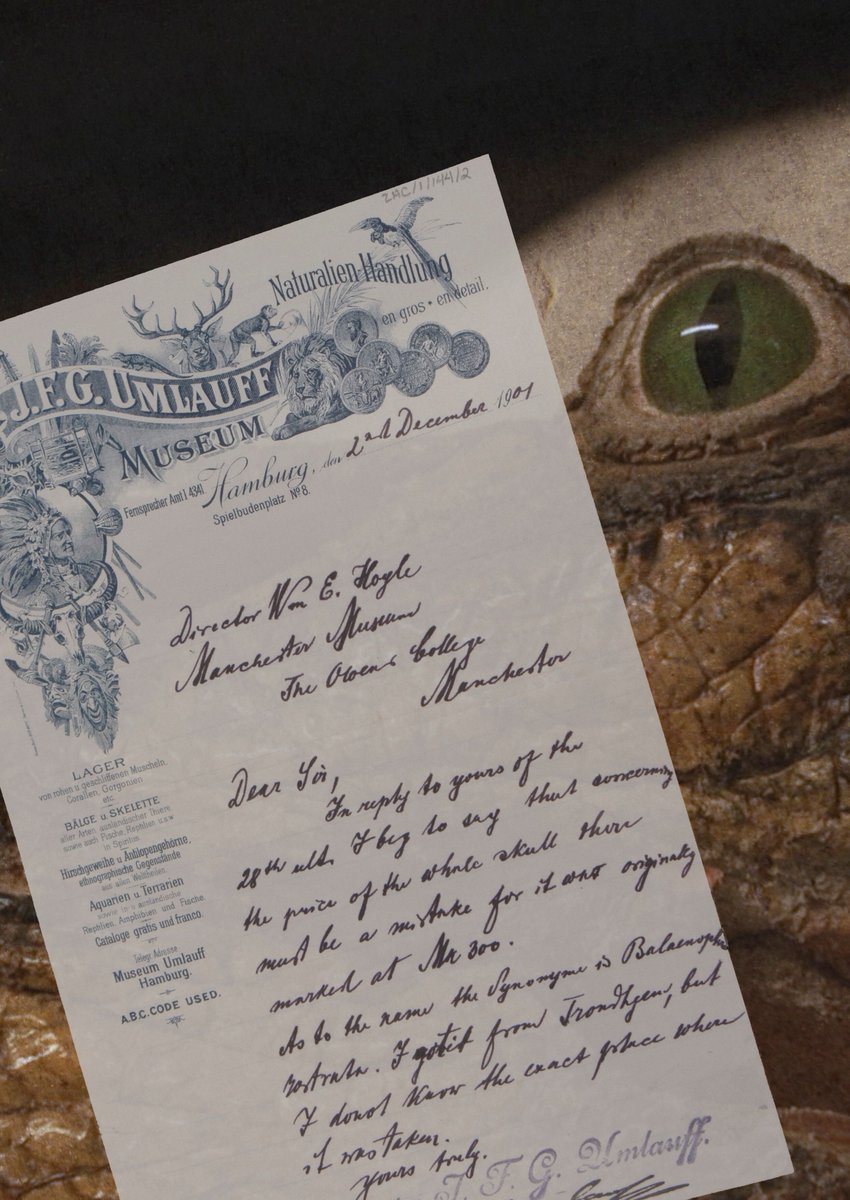 ZAC/1/144/2
Naturalien-Handlung
en gros • en detail.
J.F.G. UMLAUFF
MUSEUM
Fernsprecher Amt I 4341.
Hamburg, den 2nd December 1901
Spielbudenplatz No 8.
Director Wm E. Hoyle
Manchester Museum
The Owens College
Manchester
LAGER
von rohen u geschliffenen Muscheln,
Corallen, Gorgonien
etc.
BÄLGE u. SKELETTE
aller Arten ausländischer Thiere,
sowie auch Fische, Reptilien u.s.w
in Spiritus.
Hirschgeweihe u Antilopengehörne,
ethnographische Gegenstände
aus allen Welttheilen.
Aquarien u. Terrarien
sowie in- u ausländische
Reptilien, Amphibien und Fische.
Cataloge gratis und franco.
Telegr. Adresse
Museum Umlauff
Hamburg.
A.B.C. CODE USED.
Dear Sir,
In reply to yours of the
28th ult. I beg to say that concerning
the price of the whole skull there
must be a mistake for it was originally
marked at Mk 300.
As to the name the Synonyme is Balaenoptera
rostrata. I got it from Trondhgem, but
I donot know the exact place where
it was taken.
yours truly.
J. F. G. Umlauff.